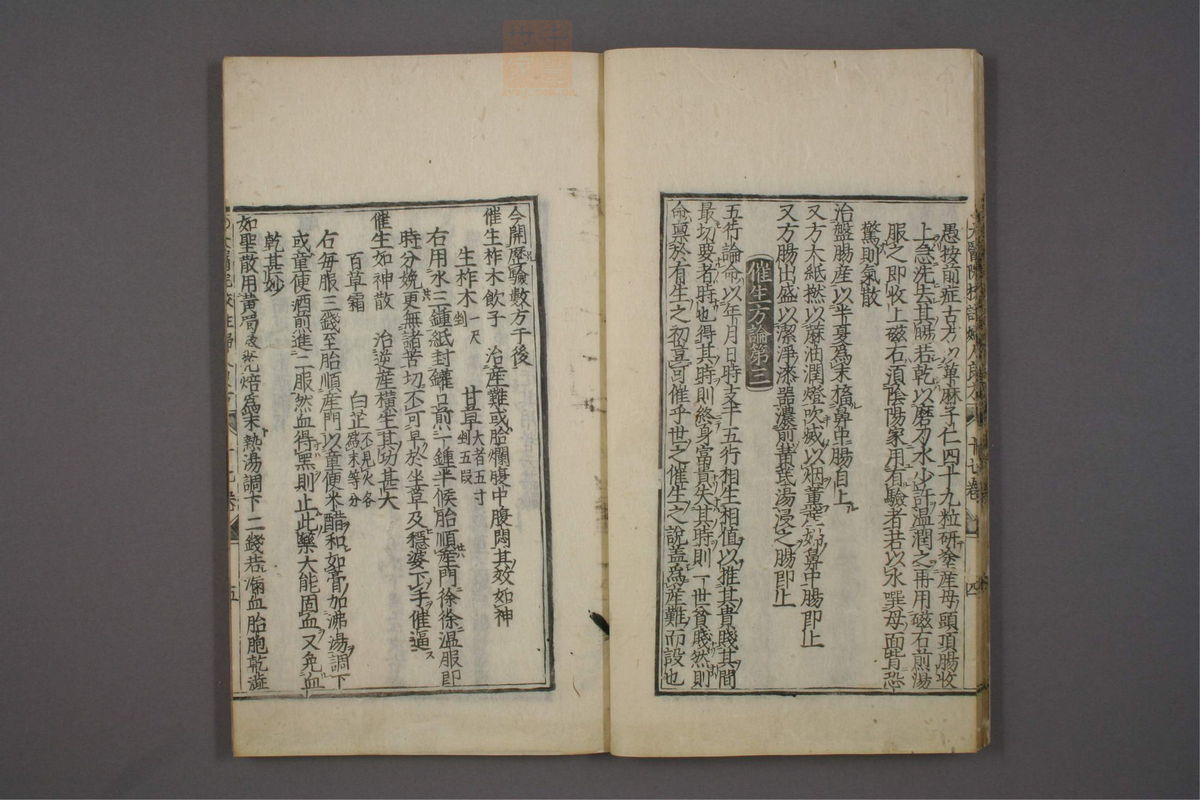 愚按前症古方以萆麻子仁四十九粒研塗産母頭頂腸收
上急洗去其腸若乾以磨刀水少許温潤之再用磁石煎湯
服之即收上磁石湏陰陽家用有驗者若以水噀母面背恐
驚則氣散
治盤腸産以半夏爲末搐鼻中腸自上
又方大紙撚以蔴油潤燈吹滅以烟薰産婦鼻中腸即上
又方腸出盛以潔淨漆器濃煎黄芪湯浸之腸即上
催生方論第三
五行論命以年月日時支干五行相生相值以推其貴賤其間
最切要者時也得其時則終身富貴失其時則一世貧賤然則
命禀於有生之初豈可催乎世之催生之說盖爲産難而設也
四
今開歷驗數方于後
催生柞木飲子 治産難或胎爛腹中腹悶其效如神
生柞木一尺剉 甘草大者五寸剉五段
右用水三鍾紙封罐口煎一鍾半候胎順産門徐徐温服即
時分娩更無諸苦切不可早於坐草及穩婆下手催逼
催生如神散 治逆産横生其功甚大
百草霜 白芷不見火各爲末等分
右毎服三錢至胎順産門以童便米醋和如膏加沸湯調下
或童便酒煎進二服然血得黑則止此藥大能固血又免血
乾甚妙
如聖散用黄蜀葵花焙爲末熱湯調下二錢若漏血胎胞乾澁
五